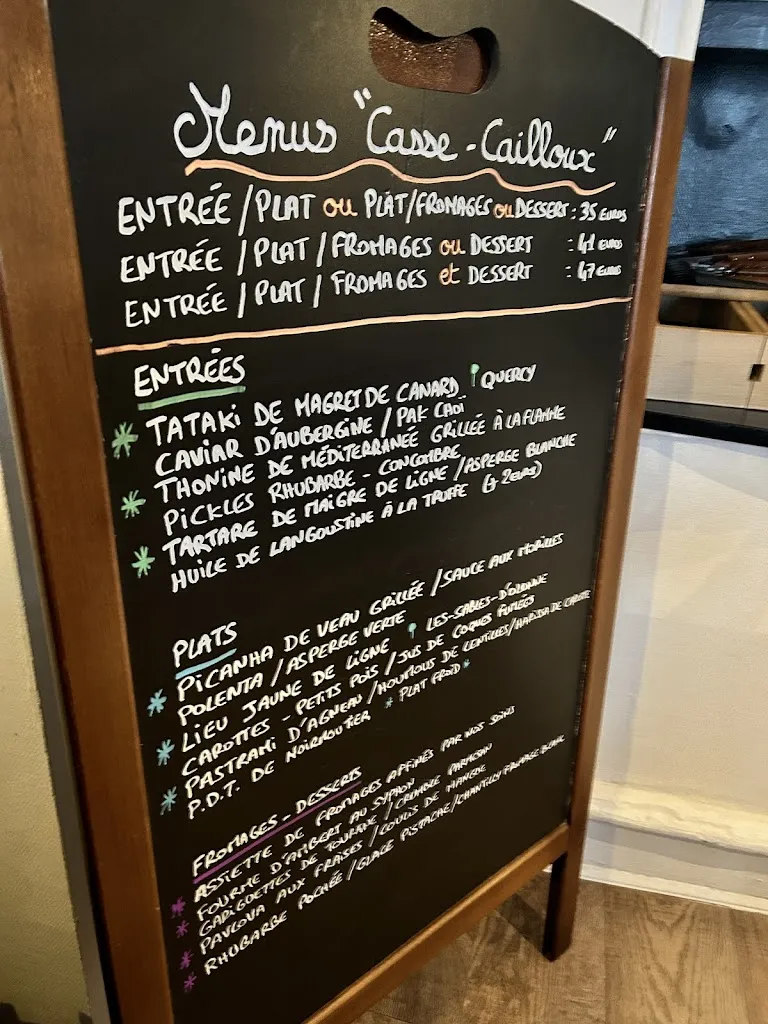 Menus "Casse-Cailloux"
ENTRÉE / PLAT ou PLAT/FROMAGES ou DESSERT : 35 EUROS
ENTRÉE / PLAT / FROMAGES ou DESSERT : 41 EUROS
ENTRÉE / PLAT / FROMAGES et DESSERT : 47 EUROS
ENTRÉES
* TATAKI DE MAGRET DE CANARD QUERCY
CAVIAR D'AUBERGINE / PAK CAOÏ
* THONINE DE MÉDITERRANÉE GRILLÉE À LA FLAMME
PICKLES RHUBARBE - CONCOMBRE
* TARTARE DE MAIGRE DE LIGNE / ASPERGE BLANCHE
HUILE DE LANGOUSTINE À LA TRUFFE (+ 2 EUROS)
PLATS
* PICANHA DE VEAU GRILLÉE / SAUCE AUX MORILLES
POLENTA / ASPERGE VERTE
* LIEU JAUNE DE LIGNE LES-SABLES-D'OLONNE
CAROTTES - PETITS POIS / JUS DE COQUES FUMÉES
* PASTRAMI D'AGNEAU / HOUMOUS DE LENTILLES / HARISSA DE CAROTTE
P.D.T. DE NOIRMOUTIER * PLAT FROID *
FROMAGES - DESSERTS
* ASSIETTE DE FROMAGES AFFINÉS PAR NOS SOINS
* FOURME D'AMBERT AU SYPHON
GARIGUETTES DE TOURAINE / CRUMBLE PARMESAN
* PAVLOVA AUX FRAISES / COULIS DE MANGUE
* RHUBARBE POCHÉE / GLACE PISTACHE / CHANTILLY FROMAGE BLANC